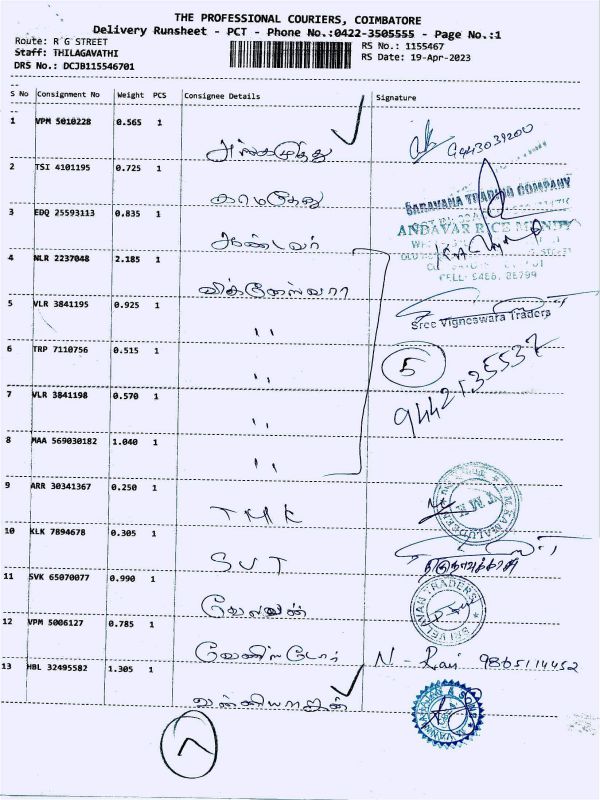 THE PROFESSIONAL COURIERS, COIMBATORE
Delivery Runsheet - PCT - Phone No.:0422-3505555 - Page No.:1
Route: R G STREET
Staff: THILAGAVATHI
DRS No: DCJB115546701
RS No.: 1155467
RS Date: 19-Apr-2023
S No Consignment No Weight PCS Consignee Details Signature
1 VPM 5010228 0.565 1
2 TSI 4101195 0.725 1 காமதேனு
SARAVANA TRADING COMPANY
3 EDQ 25593113 0.835 1
ANDAVAR RICE MUNDY
4 NLR 2237048 2.185 1 விக்னேஸ்வரா
5 VLR 3841195 0.925 1 ,,
Sree Vigneswara Traders
6 TRP 7110756 0.515 1 ,,
5
9442135537
7 VLR 3841198 0.570 1 ,,
8 MAA 569030182 1.040 1 ,,
9 ARR 30341367 0.250 1 TMK
10 KLK 7894678 0.305 1 SVT
11 SVK 65070077 0.990 1 வேலவன்
SRI VELAVAN TRADERS
12 VPM 5006127 0.785 1
N - Ravi 9865114452
13 HBL 32495582 1.305 1
7